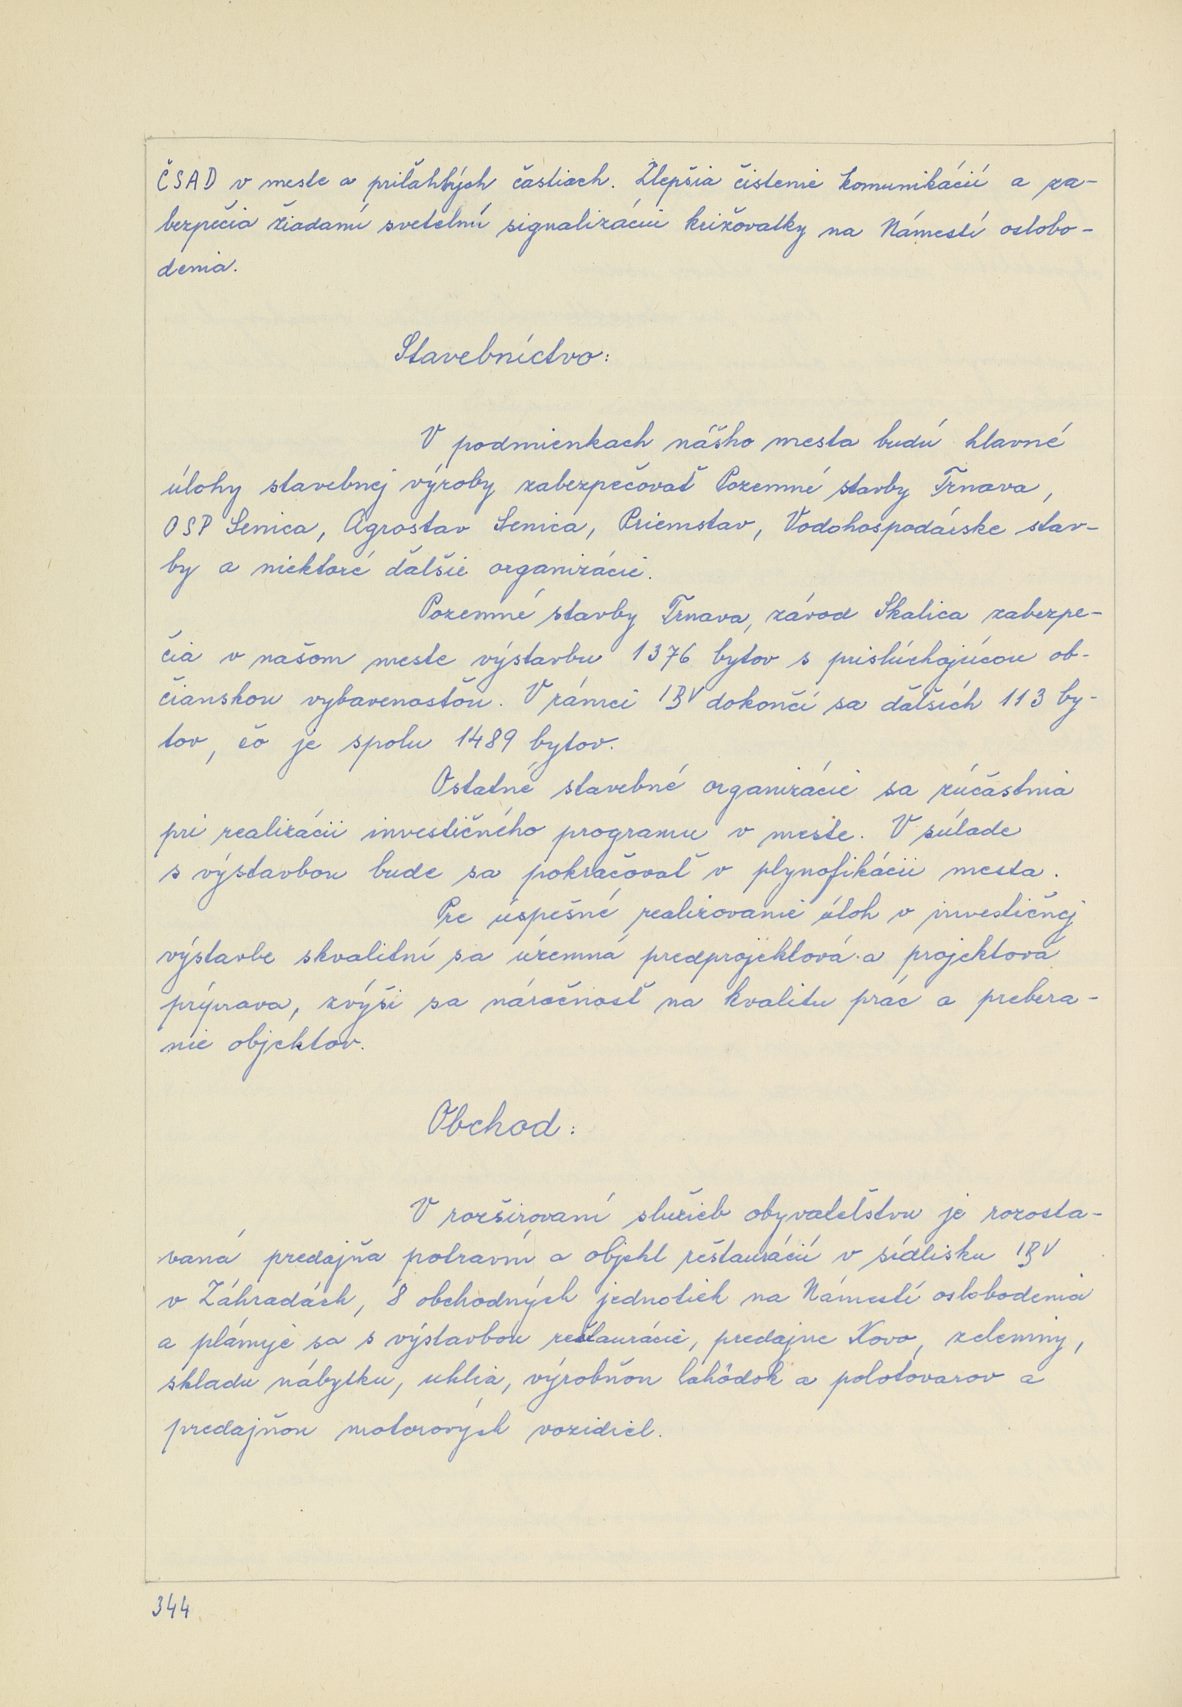 ČSAD v meste a priľahlých častiach. Zlepšia čistenie komunikácií a za-
bezpečia žiadanú svetelnú signalizáciu križovatky na Námestí oslobo-
denia.
Stavebníctvo:
V podmienkach nášho mesta budú hlavné
úlohy stavebnej výroby zabezpečovať Pozemné stavby Trnava,
OSP Senica, Agrostav Senica, Priemstav, Vodohospodárske stav-
by a niektoré ďalšie organizácie.
Pozemné stavby Trnava, závod Skalica zabezpe-
čia v našom meste výstavbu 1376 bytov s prislúchajúcou ob-
čianskou vybavenosťou. V rámci IBV dokončí sa ďalších 113 by-
tov, čo je spolu 1489 bytov.
Ostatné stavebné organizácie sa zúčastnia
pri realizácii investičného programu v meste. V súlade
s výstavbou bude sa pokračovať v plynofikácii mesta.
Pre úspešné realizovanie úloh v investičnej
výstavbe skvalitní sa územná predprojektová a projektová
príprava, zvýši sa náročnosť na kvalitu prác a prebera-
nie objektov.
Obchod:
V rozširovaní služieb obyvateľstvu je rozosta-
vaná predajňa potravín a objekt reštaurácií v sídlisku IBV
v Záhradách, 8 obchodných jednotiek na Námestí oslobodenia
a plánuje sa s výstavbou reštaurácie, predajne Kovo, zeleniny,
skladu nábytku, uhlia, výrobňou lahôdok a polotovarov a
predajňou motorových vozidiel.
344